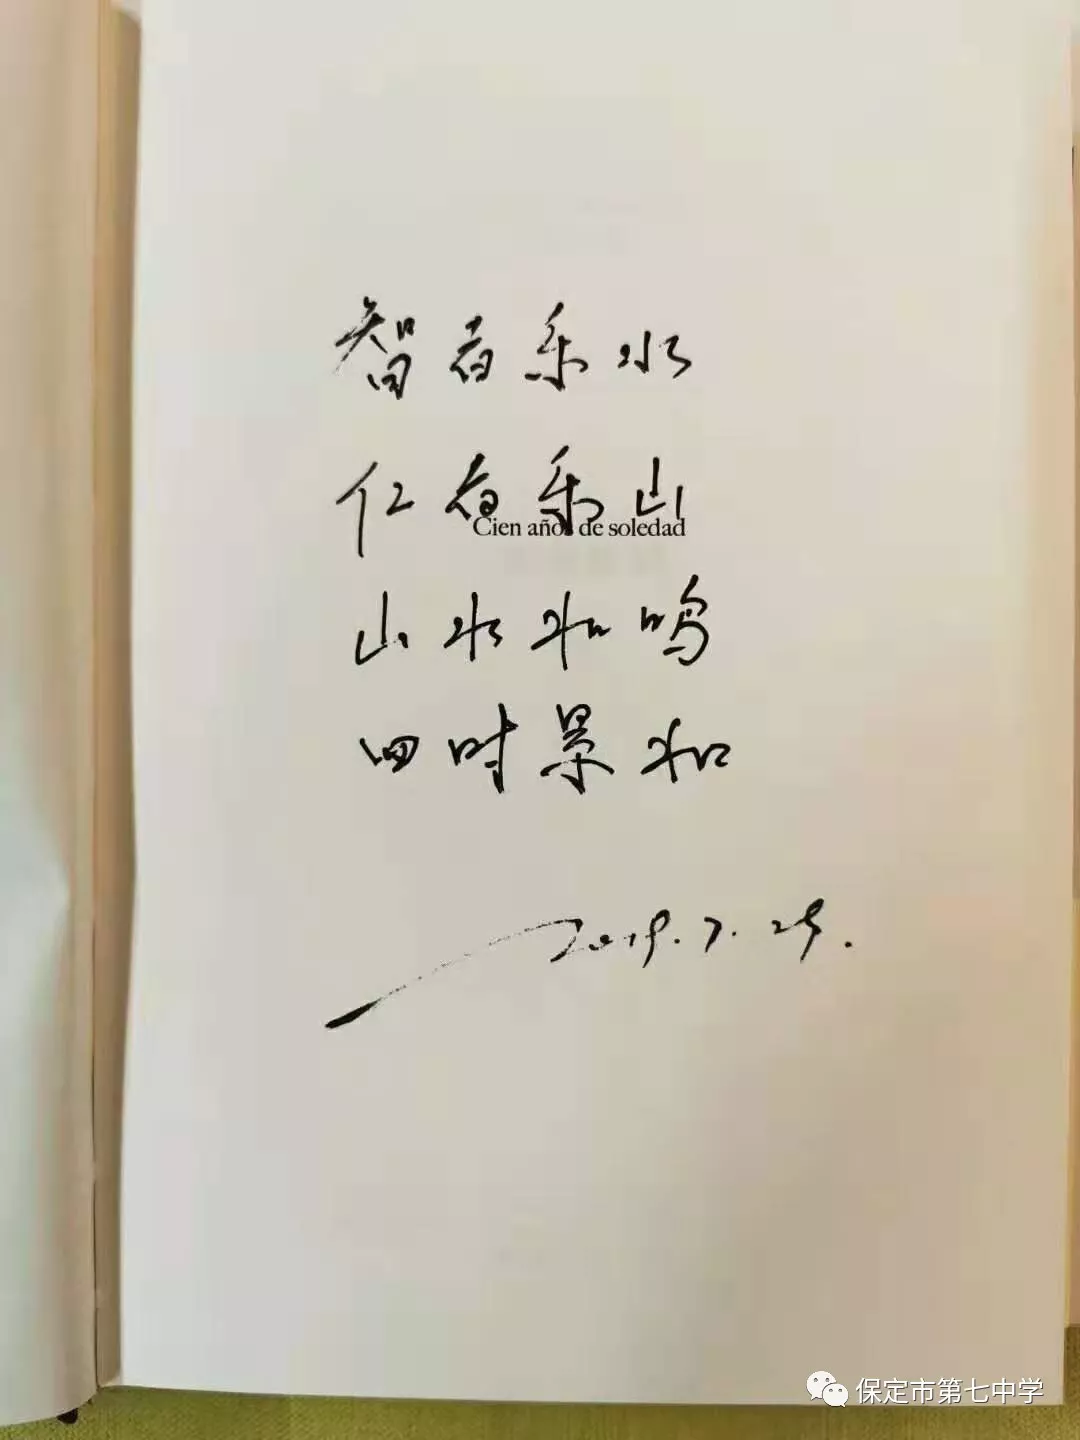 智者乐水
仁者乐山
Cien años de soledad
山水和鸣
四时景和
2019.7.29.
保定市第七中学